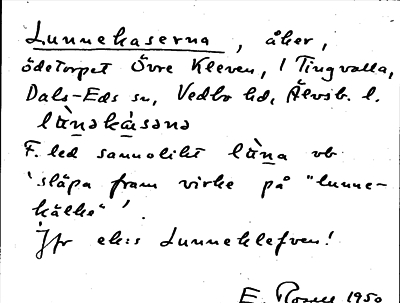 Lunnekaserna, åker,
ödetorpet Övre Kleven, 1 Tingvalla,
Dals-Eds sn, Vedbo hd, Älvsb. l.
lùnəkásənə
F. led sannolikt lùna vb
'släpa fram virke på "lunne-
kälke"'.
Jfr ek:s Lunneklefven!
E. 1950